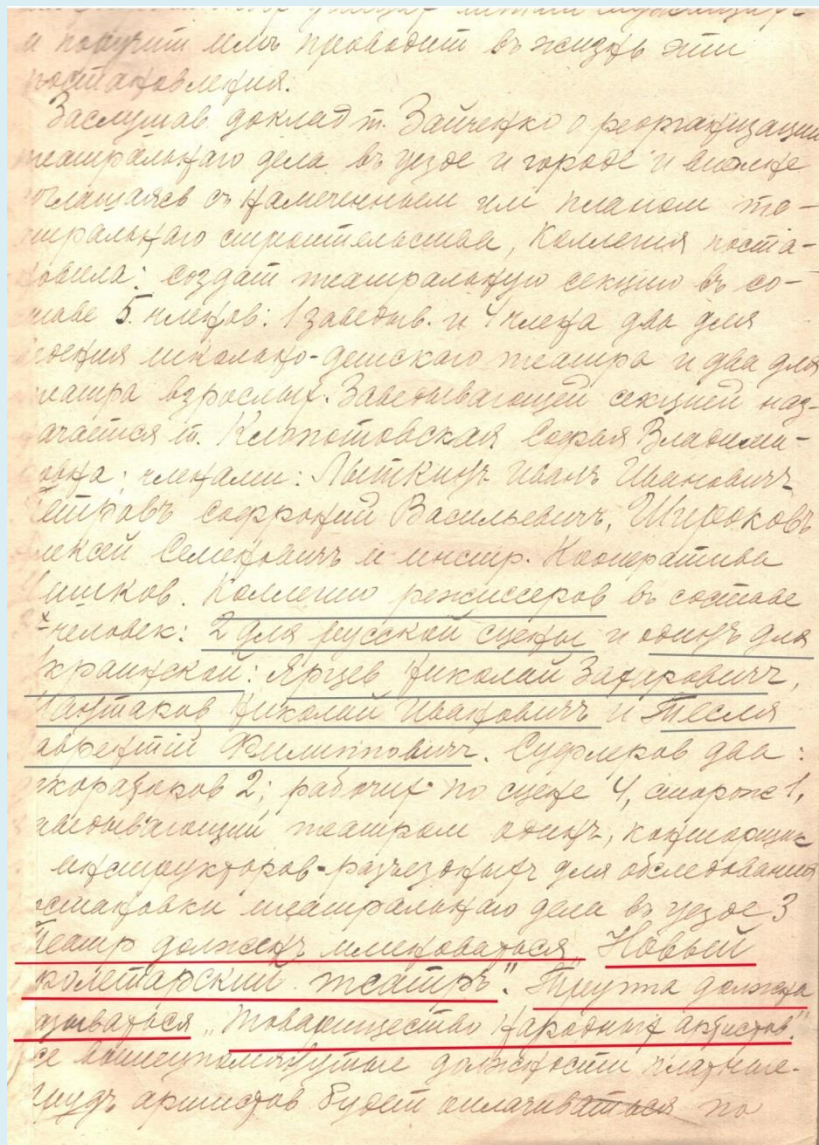 и поручит им проводит въ жизнь эти
постановления.
Заслушав доклад т. Зайченко о реорганизации
театральнаго дела въ уезде и городе и вполне
соглашаясь съ намеченным им планом те-
атральнаго строительства, Коллегия поста-
новила: создат театральную секцию въ со-
ставе 5 членов: 1 заведыв. и 4 члена два для
ведения школьно-детскаго театра и два для
театра взрослых. Заведывающей секцией наз-
начается т. Клопотовская Софья Владими-
ровна; членами: Лыткинъ Иванъ Ивановичъ
Петровъ Софроний Васильевичъ, Широковъ
Алексей Семеновичъ и инстр. Кооператива
Коллегию режиссеров въ составе
человек: 2 для русской сцены и одинъ для
украинской: Ярцев Николай Захаровичъ,
Николай Ивановичъ и Тесля
Лаврентий Филипповичъ. Суфлеров два;
декораторов 2; рабочих по сцене 4, сторож 1,
заведывающий театром одинъ, конторщик
инструкторов-разъездных для обследования
постановки театральнаго дела въ уезде 3
Театр долженъ именоваться „Новый
пролетарский театръ". Труппа должна
называться „Товарищество народных артистов."
Все вышеупомянутые должности платные.
Трудъ артистов будет оплачиваться по